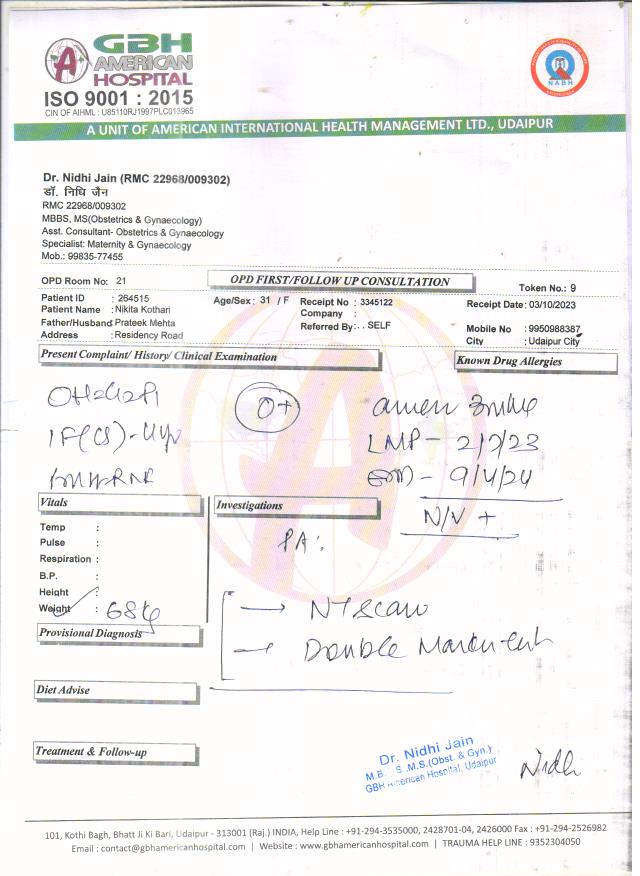 GBH
AMERICAN
HOSPITAL
ISO 9001 : 2015
CIN OF AIHML : U85110RJ1997PLC013965
NABH
A UNIT OF AMERICAN INTERNATIONAL HEALTH MANAGEMENT LTD., UDAIPUR
Dr. Nidhi Jain (RMC 22968/009302)
डॉ. निधि जैन
RMC 22968/009302
MBBS, MS(Obstetrics & Gynaecology)
Asst. Consultant- Obstetrics & Gynaecology
Specialist: Maternity & Gynaecology
Mob.: 99835-77455
OPD Room No: 21 OPD FIRST/FOLLOW UP CONSULTATION Token No.: 9
Patient ID : 264515 Age/Sex : 31 / F Receipt No : 3345122 Receipt Date : 03/10/2023
Patient Name : Nikita Kothari Company :
Father/Husband Prateek Mehta Referred By : . . SELF Mobile No : 9950988387
Address : Residency Road City : Udaipur City
Present Complaint/ History/ Clinical Examination Known Drug Allergies
O+
LMP - 2/7/23
9/4/24
N/V +
Vitals Investigations
Temp :
Pulse : PA:
Respiration :
B.P. :
Height :
Weight : 68kg → NT Scan
Provisional Diagnosis → Double Marker test
Diet Advise
Treatment & Follow-up
Dr. Nidhi Jain
M.S.(Obst. & Gyn.)
GBH American Hospital, Udaipur
Nidhi
101, Kothi Bagh, Bhatt Ji Ki Bari, Udaipur - 313001 (Raj.) INDIA, Help Line : +91-294-3535000, 2428701-04, 2426000 Fax : +91-294-2526982
Email : contact@gbhamericanhospital.com | Website : www.gbhamericanhospital.com | TRAUMA HELP LINE : 9352304050